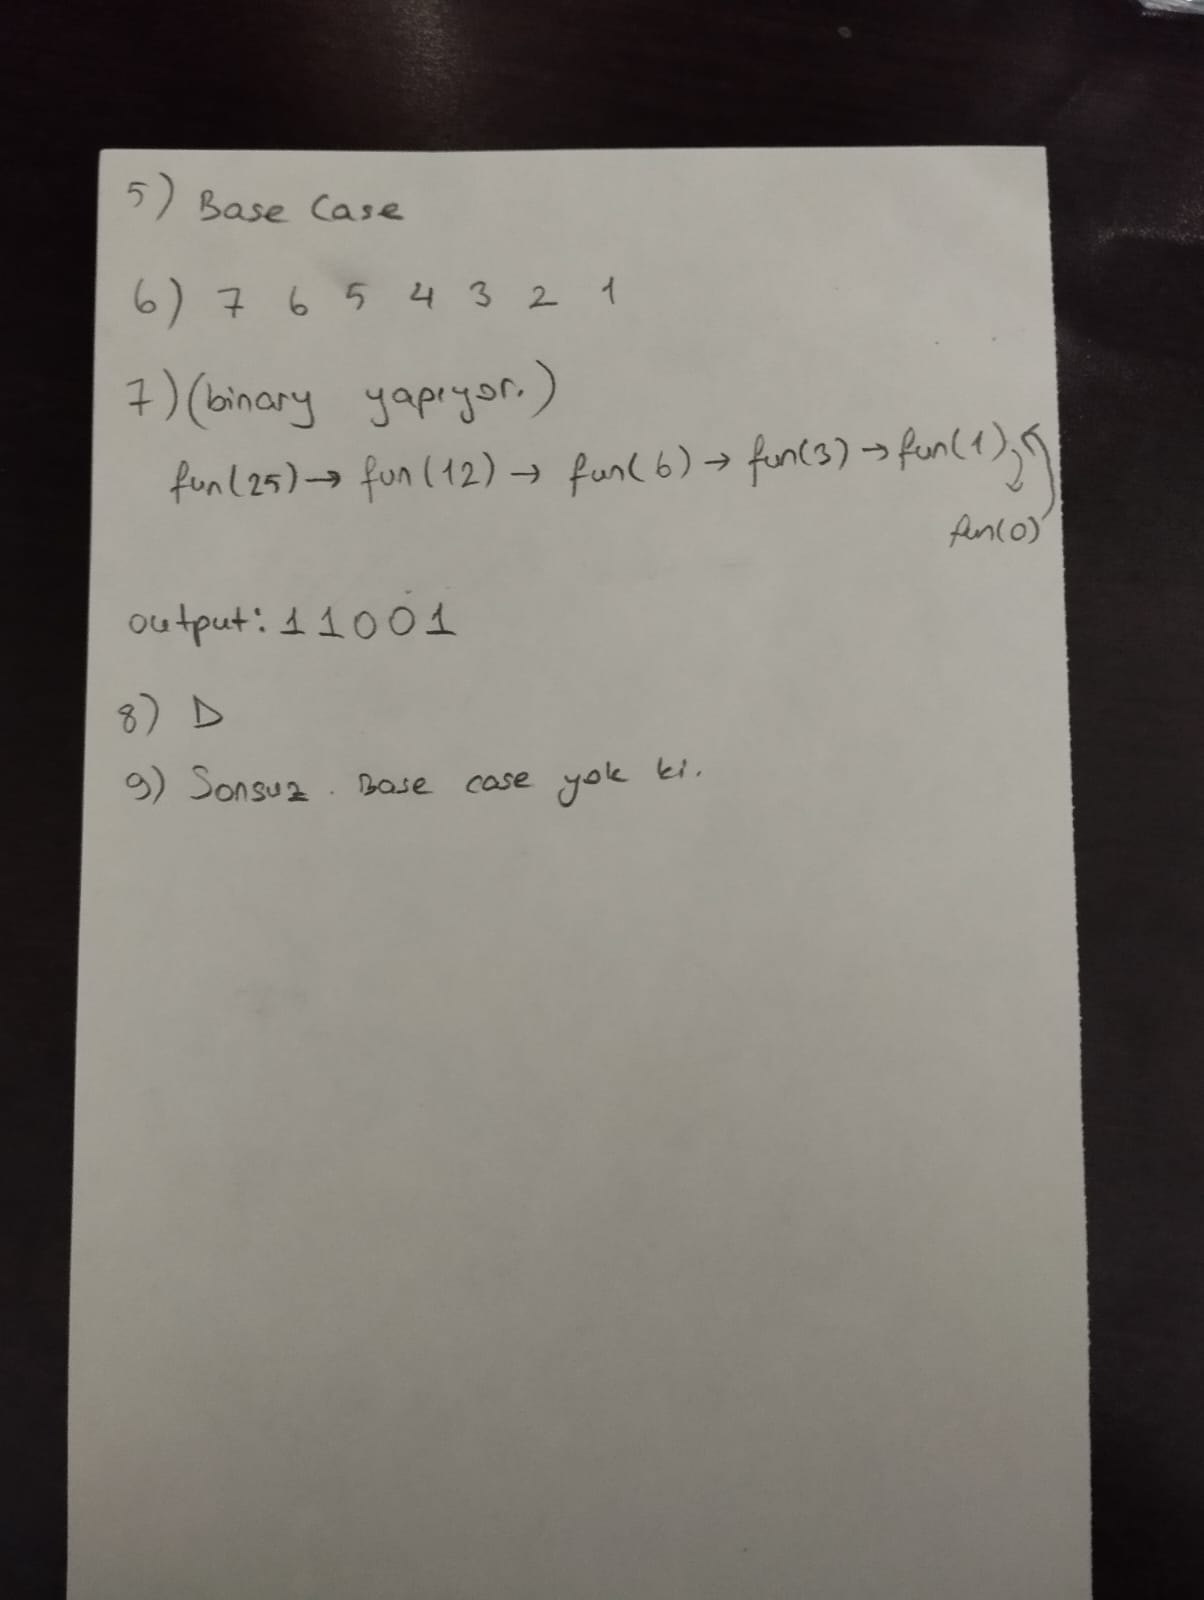 5) Base Case
6) 7 6 5 4 3 2 1
7) (binary yapıyor.)
fun(25) → fun(12) → fun(6) → fun(3) → fun(1)
fun(0)
output: 11001
8) D
9) Sonsuz. Base case yok ki.